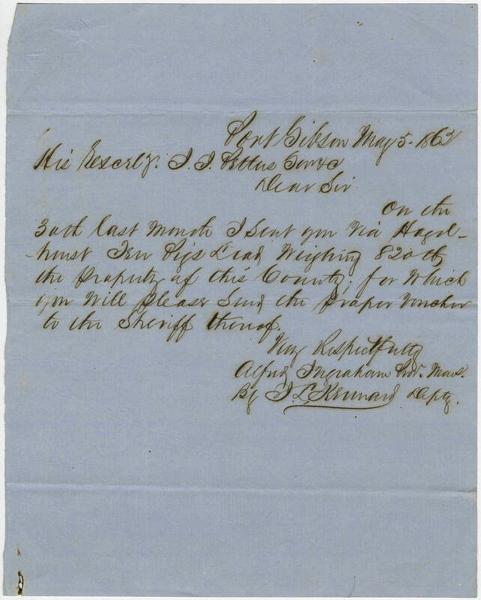 Port Gibson May 5. 1862
His Excely. J. J. Pettus Gov &c
Dear Sir
On the
30th last month I Sent you Via Hazel-
hurst Ten Pigs Lead Weighing 820 lbs
the Property of this County, for Which
you Will Please Send the Proper Voucher
to the Sheriff thereof.
Very Respectfully
Alfred Ingraham Mars.
By J. L. Kennard Depty.